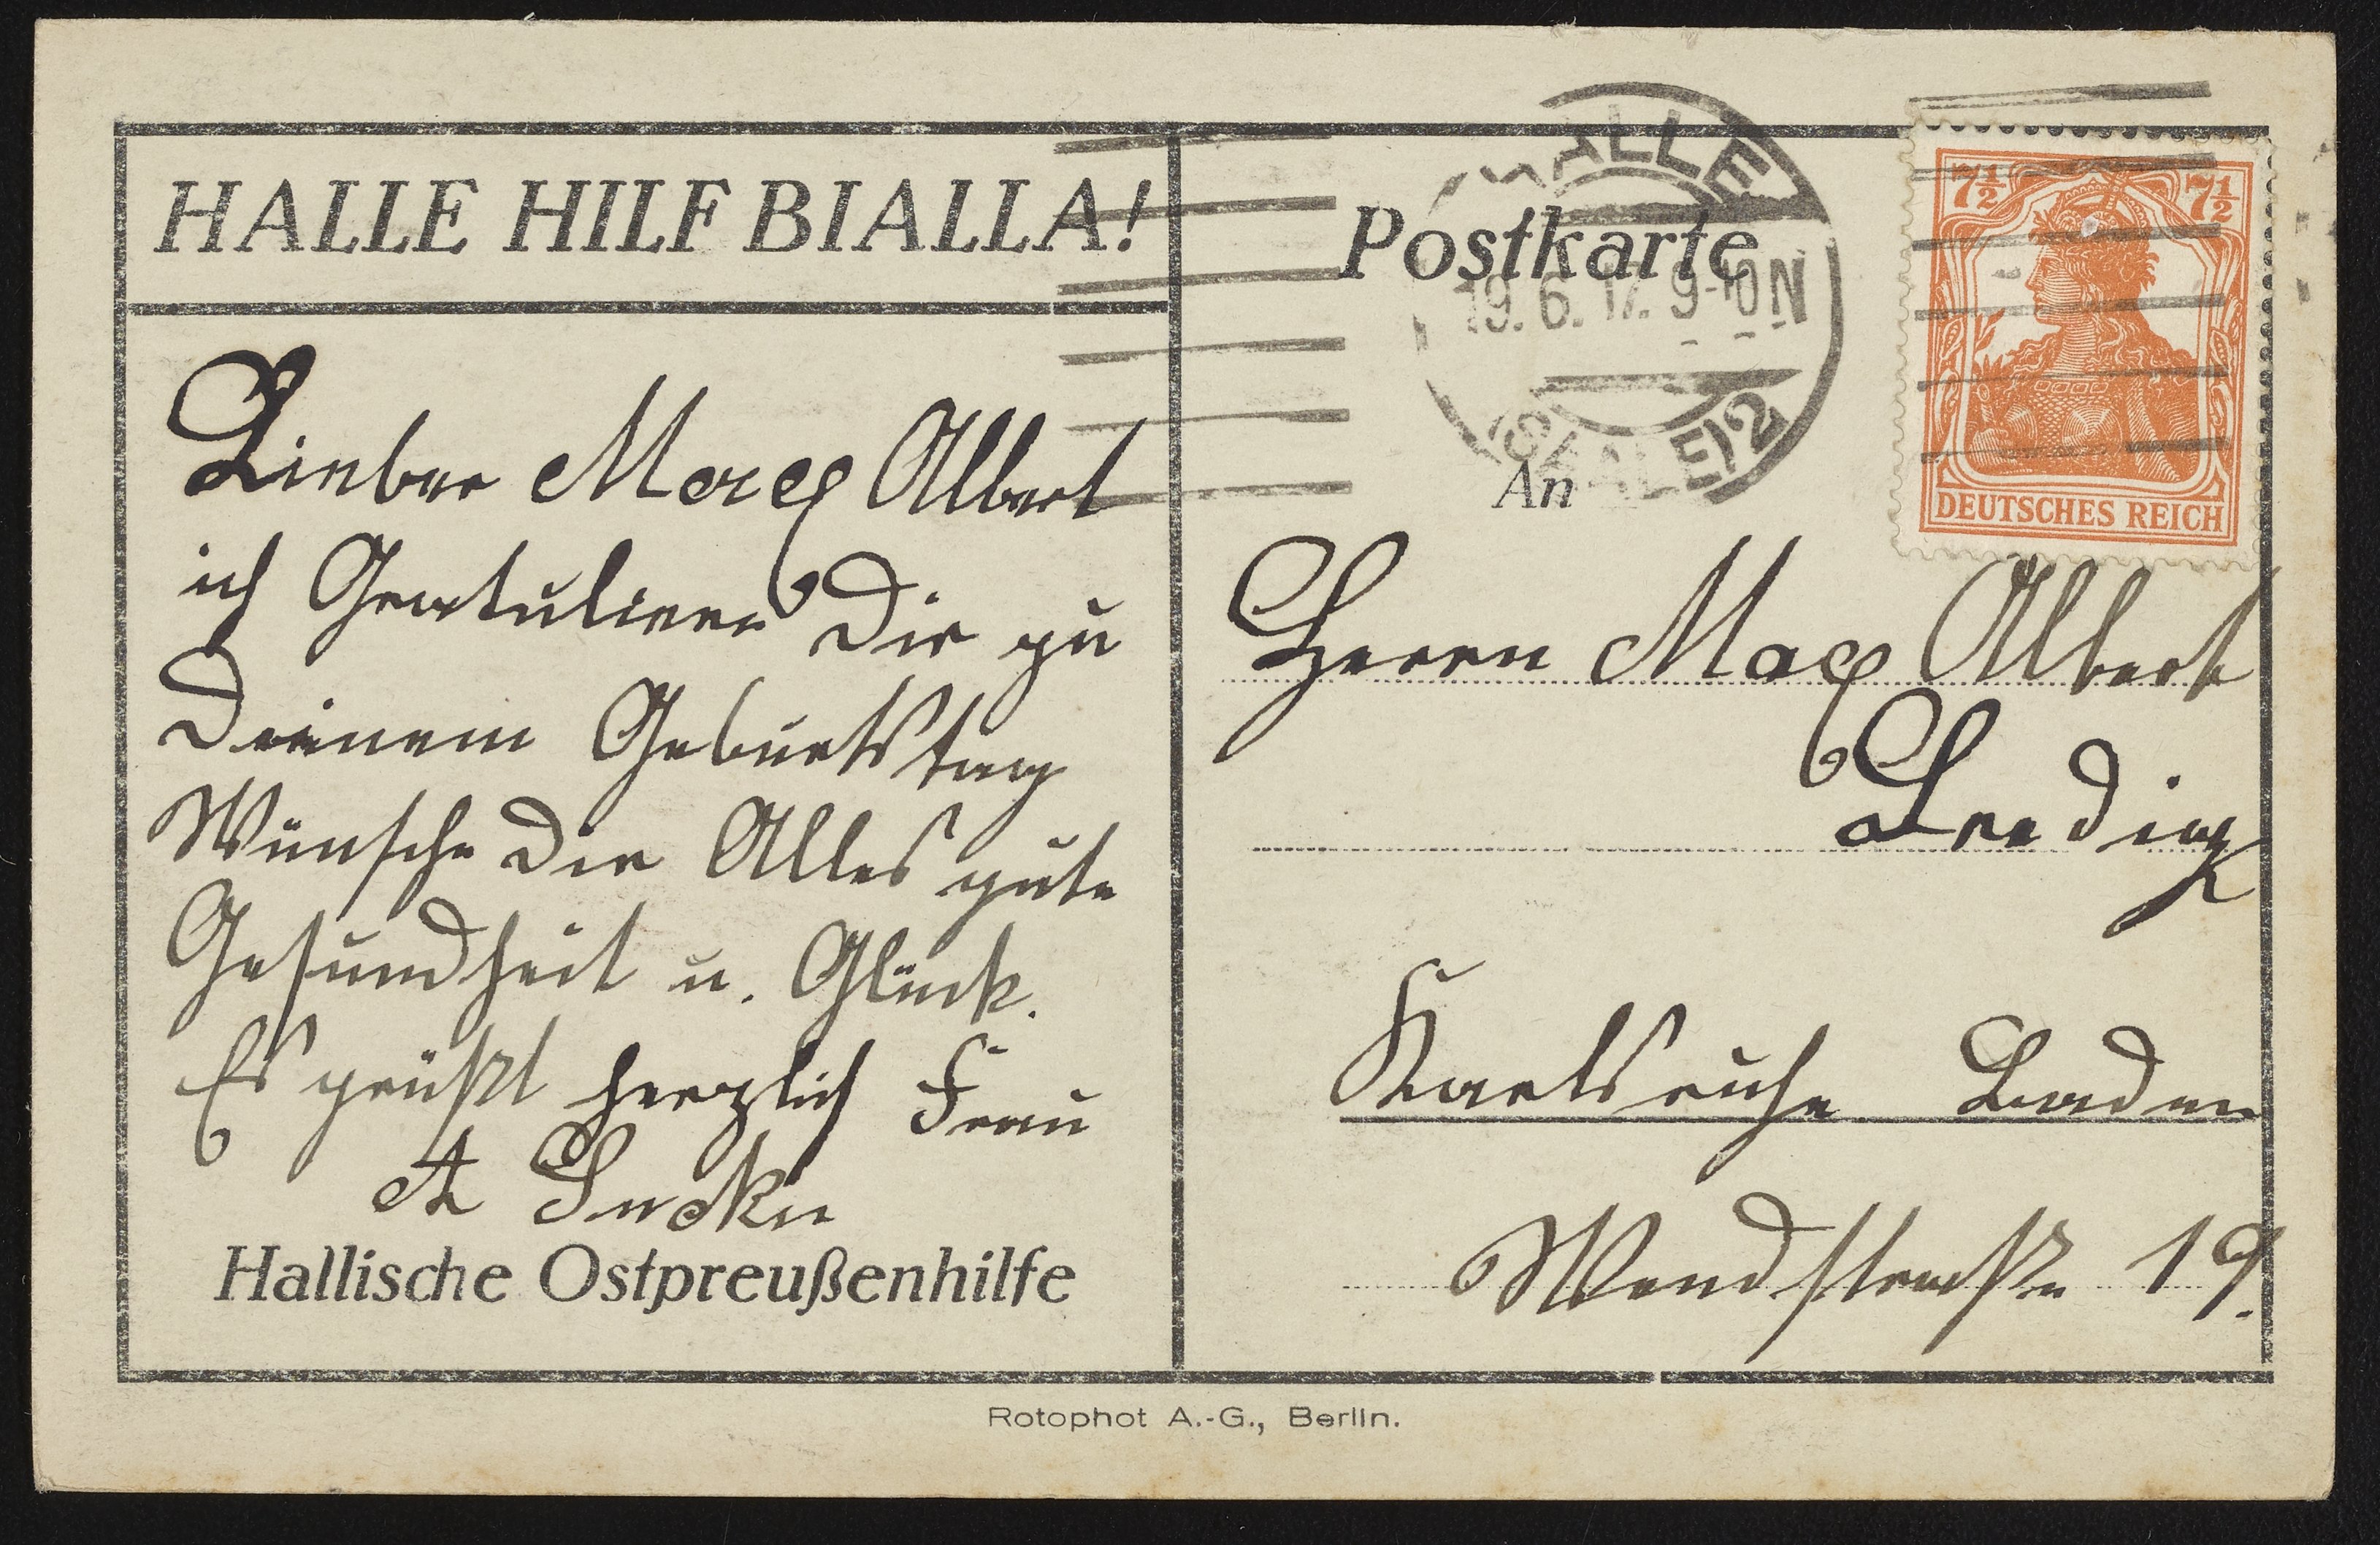 HALLE HILF BIALLA!
Lieber Max Albert
ich Gratuliere Dir zu
Deinem Geburtstag
Wünsche Dir Alles gute
Gesundheit u. Glück.
Es grüßt herzlich Frau
A
Hallische Ostpreußenhilfe
Postkarte
HALLE
19.6.17. 9-10N
(SAALE) 2
7½ 7½
DEUTSCHES REICH
An
Herrn Max Albert
Bredig
Karlsruhe Baden
Wendstraße 19.
Rotophot A.-G., Berlin.